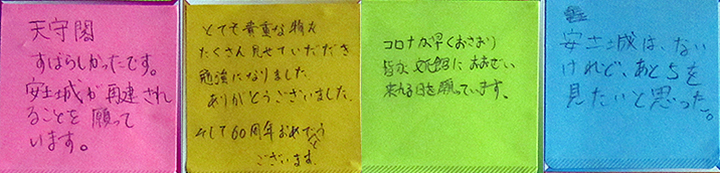 天守閣
すばらしかったです。
安土城が再建され
ることを願って
います。
とても貴重な物を
たくさん見せていただき
勉強になりました。
ありがとうございました。
そして60周年おめでとう
ございます。
コロナが早くおさまり
皆が文芸館におおぜい
来れる日を願っています。
安土城は、ない
けれど、あと5を
見たいと思った。